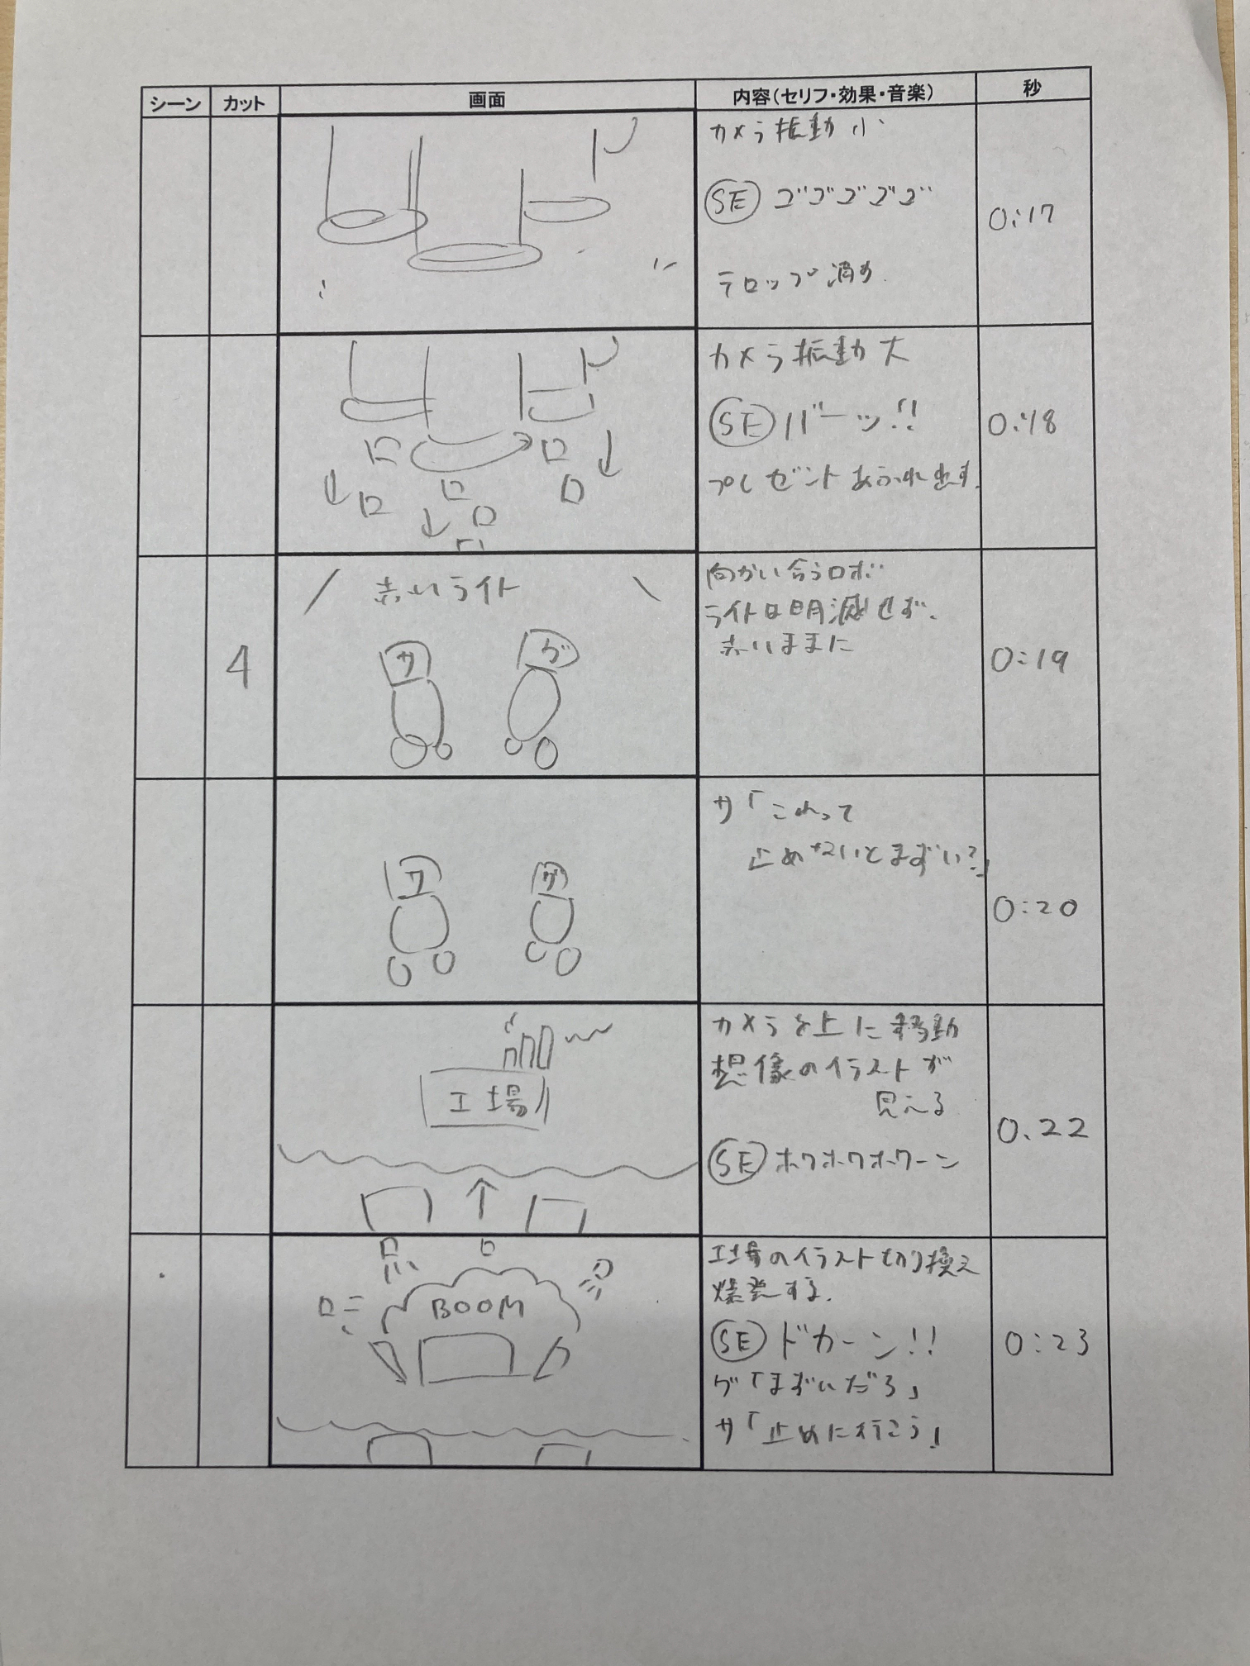 シーン カット 画面 内容(セリフ・効果・音楽) 秒
カメラ振動 小
SE ゴゴゴゴゴ
テロップ 消め
0:17
カメラ振動 大
SE バーッ!!
プレゼントあふれ出す.
0:18
4
赤いライト
サ グ
向かい合うロボ
ライトは明滅せず、
赤いままに
0:19
サ グ
サ「これって
止めないとまずい?」
0:20
工場
カメラを上に移動
想像のイラストが
見える
SE ホワホワホワーン
0.22
BOOM
工場のイラスト切り換え
爆発する.
SE ドカーン!!
グ「まずいだろ」
サ「止めに行こう」
0:23